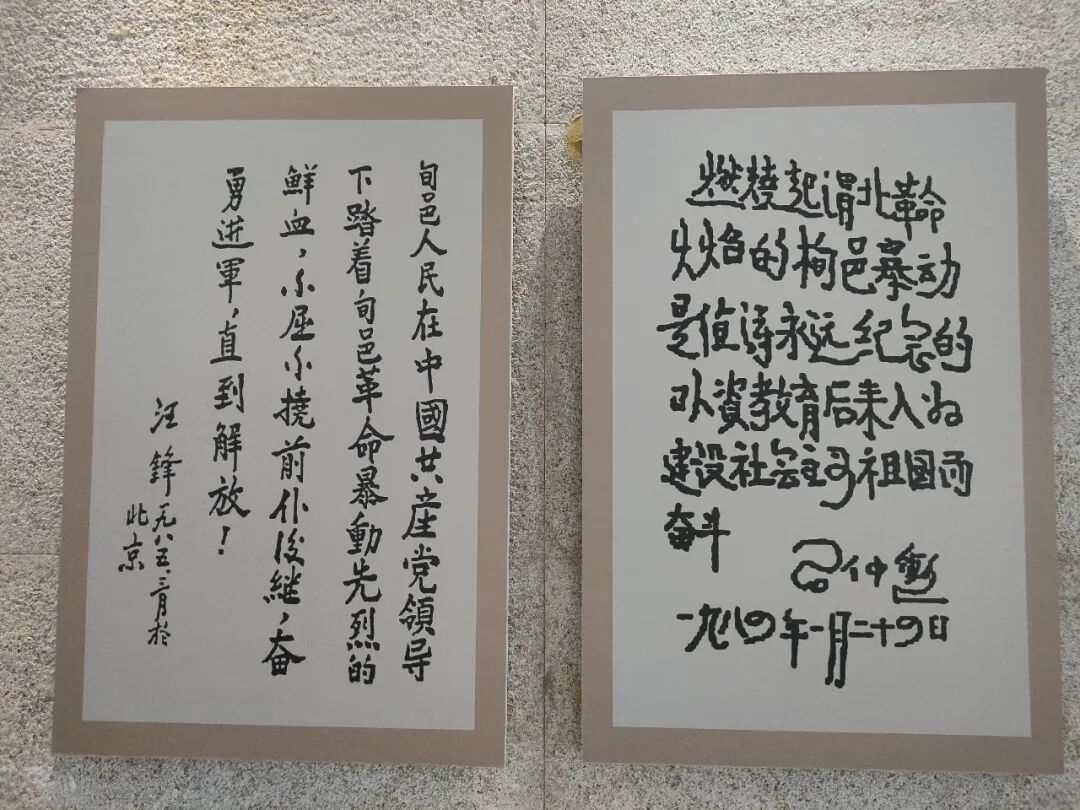 旬邑人民在中國共産党領导
下踏着旬邑革命暴動先烈的
鮮血，不屈不撓前仆後継，奋
勇进軍，直到解放！
汪鋒一九八五、三月於
北京
燃燒起渭北革命
火焰的栒邑暴动
是值得永远纪念的
以資教育后来人为
建设社会主义祖国而
奋斗
仲
一九八四年一月二十四日